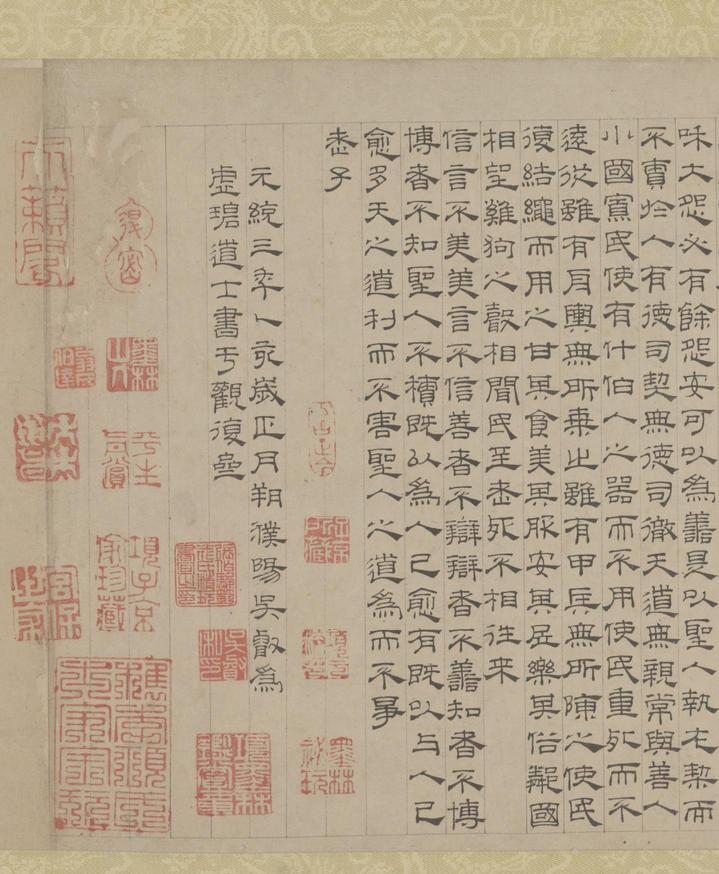 和大怨必有餘怨安可以為善是以聖人執左契而
不責於人有德司契無德司徹天道無親常與善人
小國寡民使有什伯人之器而不用使民重死而不
遠徙雖有舟輿無所乘之雖有甲兵無所陳之使民
復結繩而用之甘其食美其服安其居樂其俗鄰國
相望雞狗之聲相聞民至老死不相往來
信言不美美言不信善者不辯辯者不善知者不博
博者不知聖人不積既以為人己愈有既以与人己
愈多天之道利而不害聖人之道為而不爭
老子
元統三年乙亥歲正月朔濮陽吳叡為
虛碧道士書于觀復堂
墨林祕玩
項墨林鑑賞章
墨林山人
平生真賞
項子京家珍藏
檇李項氏士家寶玩
天籟閣
宮保世家